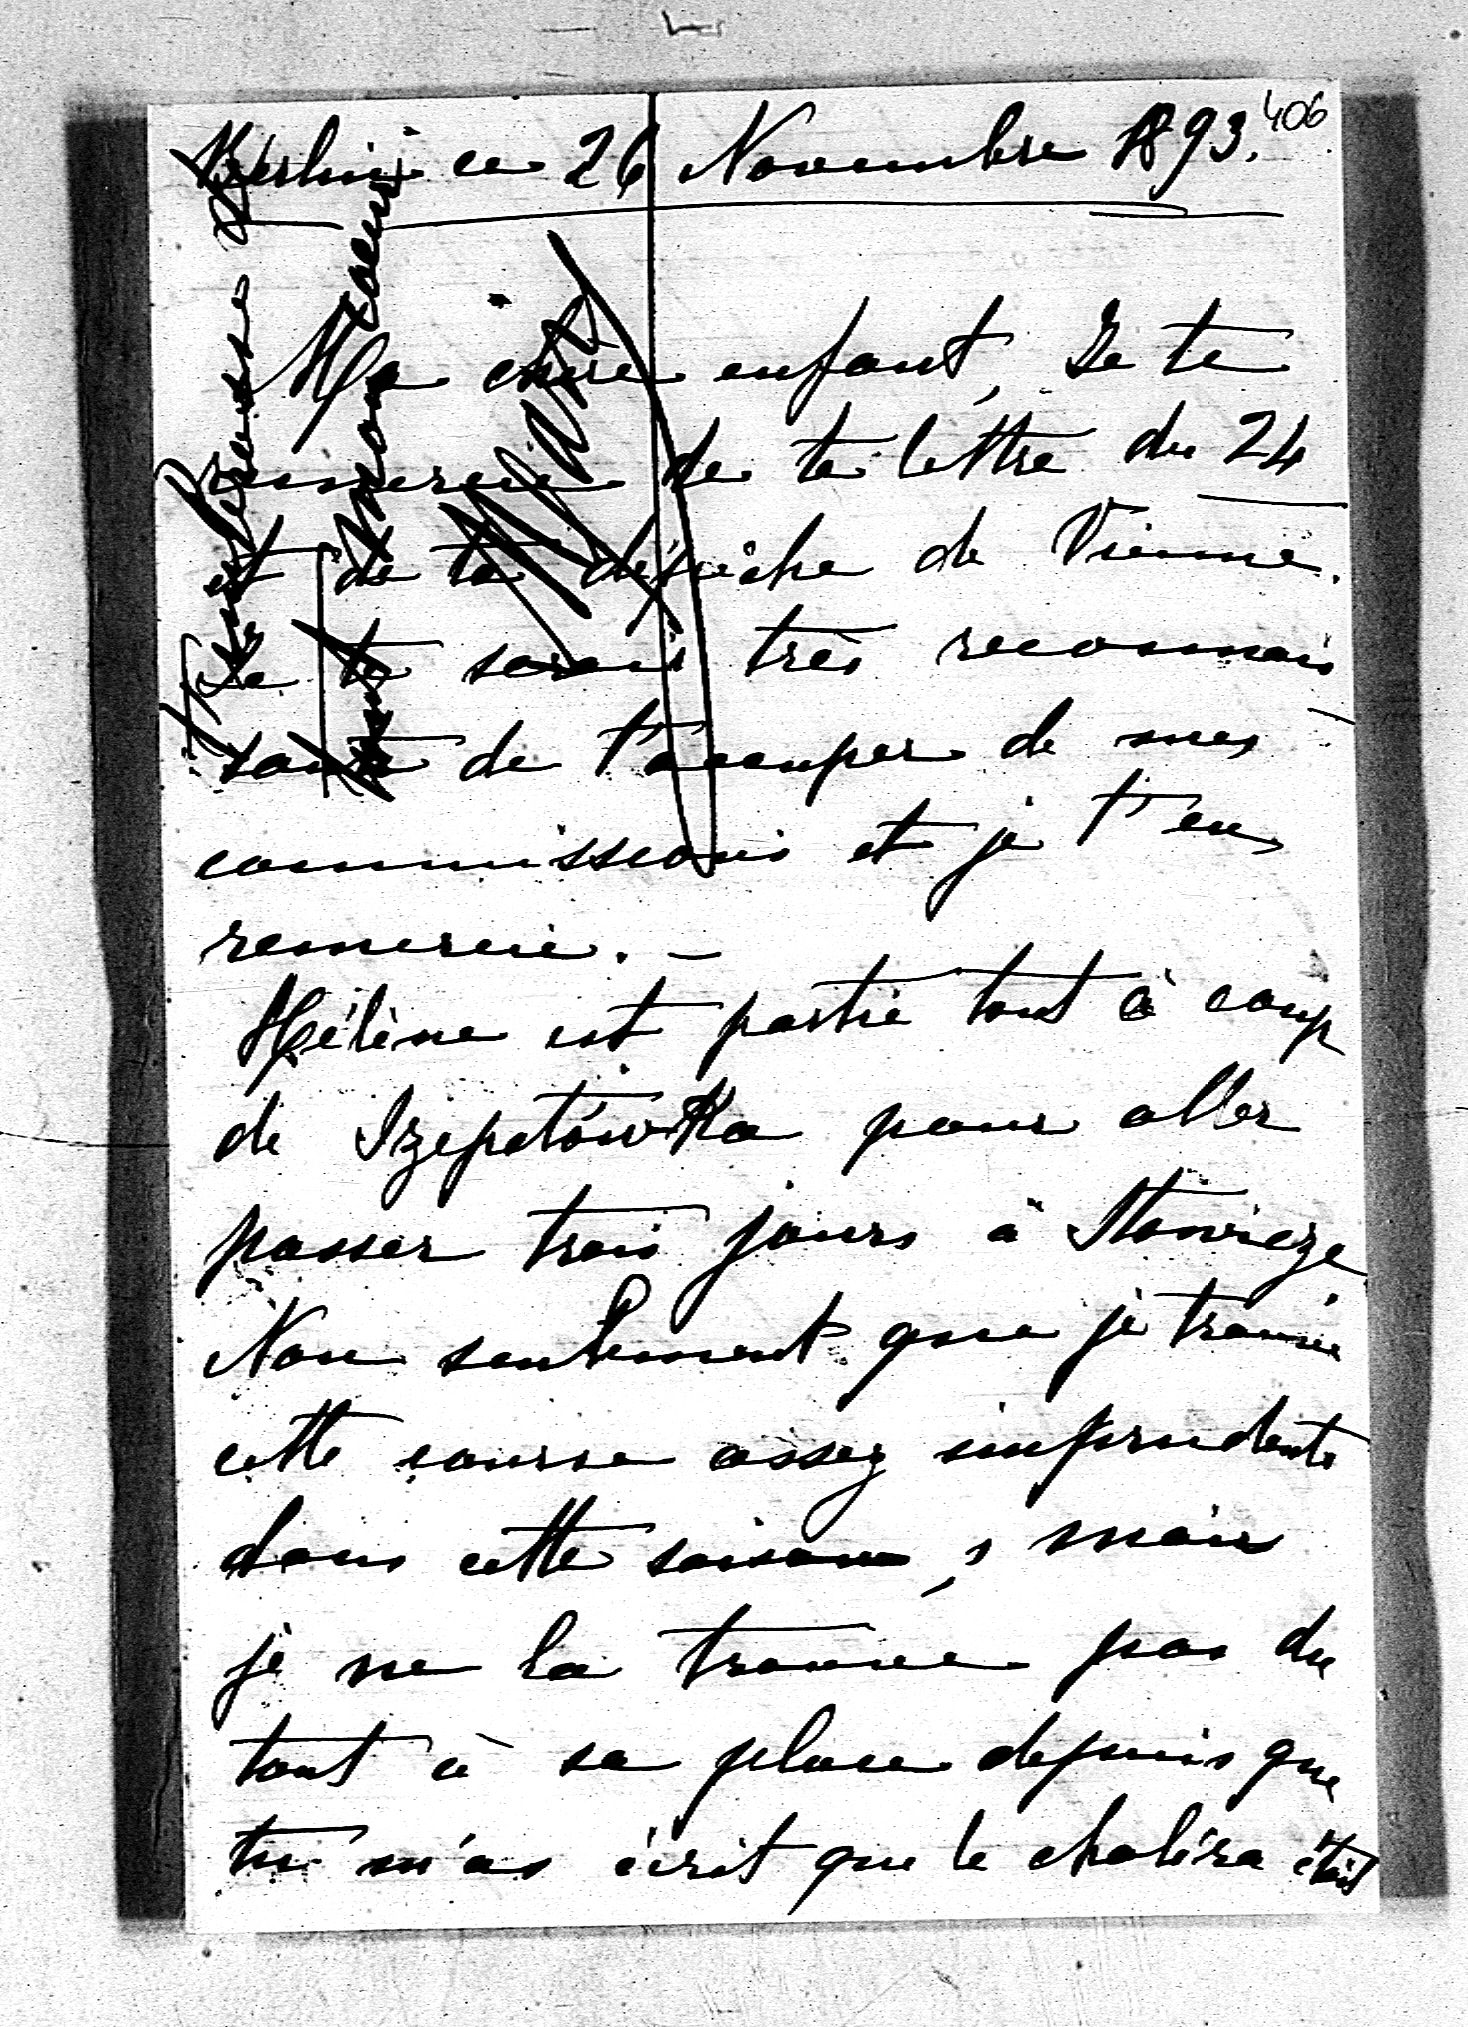 406
Berlin ce 26 Novembre 1893.
Ma chère enfant, Je te
remercie de ta lettre du 24
et de ta dépêche de Vienne.
Je te serais très reconnais
sante de t'occuper de mes
commissions et je t'en
remercie. –
Hélène est partie tout à coup
de Szepetówka pour aller
passer trois jours à Stawieze
Non seulement que je trouve
cette course assez imprudente
dans cette saison, mais
je ne la trouve pas du
tout à sa place depuis que
tu m'as écrit que le choléra était